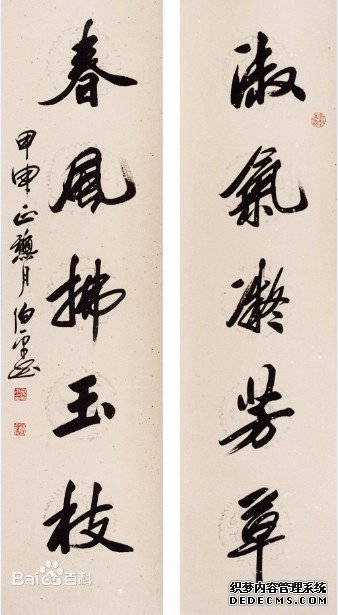 淑氣凝芳草
春風拂玉枝
甲申
Bai百科
织梦内容管理系统
DEDECMS.COM